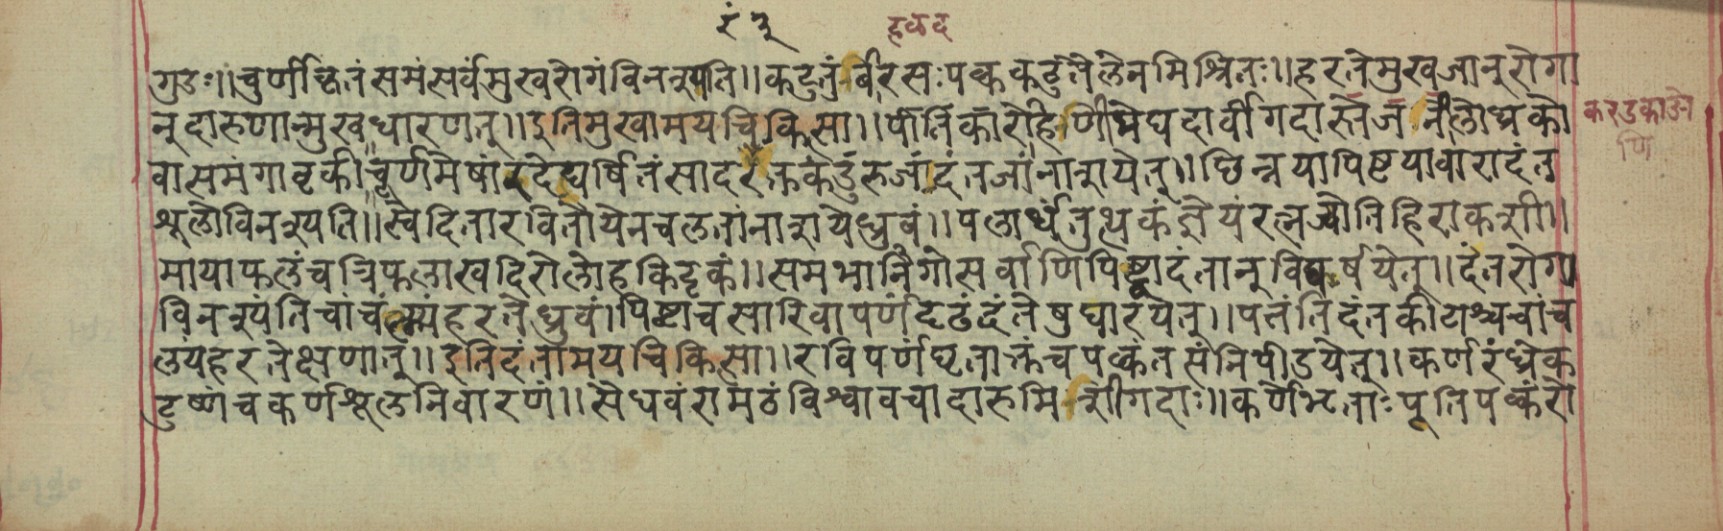 रं त्रु हळद
गुडः॥ चुर्णीछितं समं सर्वमुखरोगं विनश्यति॥ कटुतुंबीरसः पक्व कटुतैलेन मिश्रितः॥ हरते मुखजानुरोगा
नुदारुणान्मुखधारणत्॥ इति मुखामयचिकित्सा॥ पीतिकारोहिणीमेघदार्वीगदास्तेज नीलोध्रकौ
वासमंगावृकी चूर्णमेषां रदेघर्षितं सादरं रक्तकंडुरुजां दंतजां नाशयेत्॥ छिन्नयापिष्टयावारादंत
श्रूलोविनश्यति॥ स्वेदितारवितोयेनचलतांनाशयेध्रुवं॥ पलार्धंतुत्थकंज्ञेयंरत्नज्योतिहिराकशी॥
मायाफलंचत्रिफलाखदिरोलोहकिट्टकं॥ समभानिगोसर्वाणिपिष्ट्वादंतानुविघर्षयेत्॥ दंतरोगा
विनश्यंतिचांचल्यंहरतेध्रुवं। पिष्टाचसारिवापर्णंदृढंदंतेषुधारयेत्॥ पतंतिदंतकीटाश्चचांच
ल्यंहरतेक्षणात्॥ इतिदंतामयचिकित्सा॥ रविपर्णंघृताक्तंचपक्वंतसंनिपीडयेत्॥ कर्णरंध्रेक
दुष्णंचकर्णश्रूलनिवारणं॥ सैधवंरामठंविश्वावचादारुमिशीगदाः॥ कर्णेभृताःपूतिपक्वंरो
करडकाङो
णि